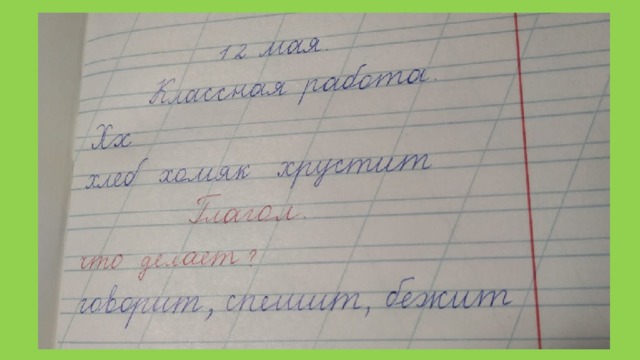 12 мая.
Классная работа.
Хх
хлеб хомяк хрустит
Глагол.
что делает?
говорит, спешит, бежит